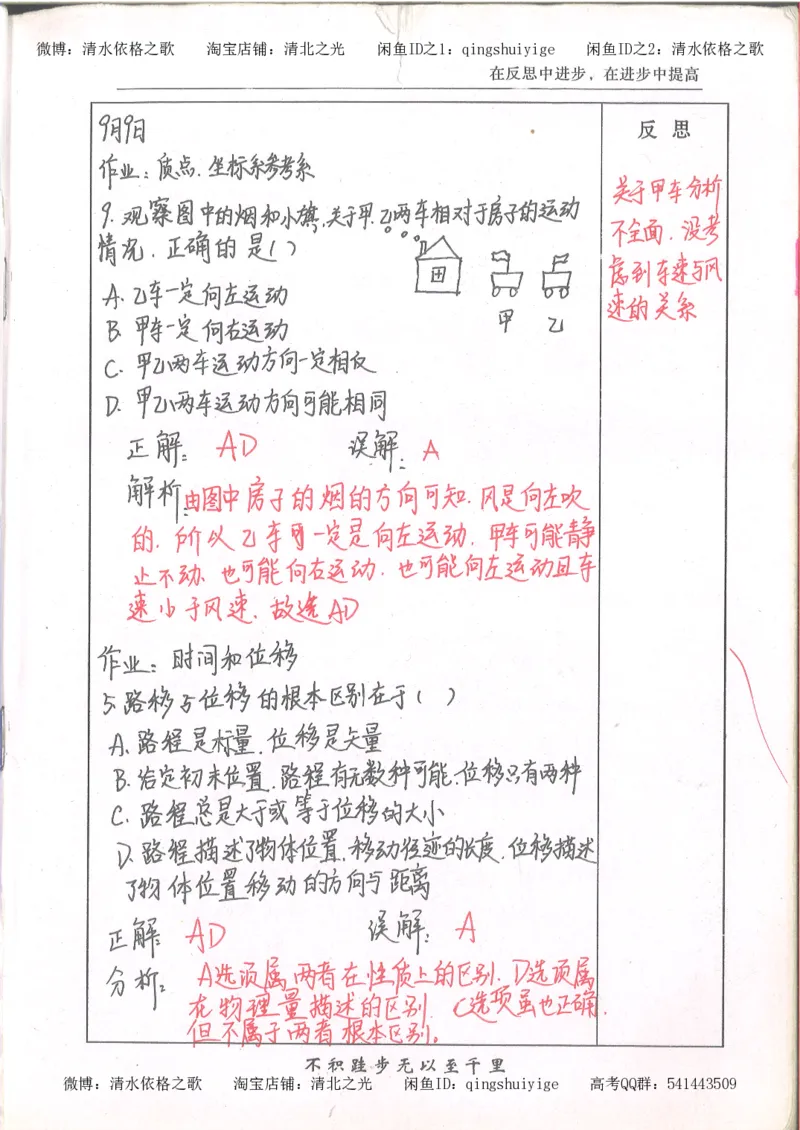 微博：清水依格之歌 淘宝店铺：清北之光 闲鱼ID之1：qingshuiyige 闲鱼ID之2：清水依格之歌
在反思中进步，在进步中提高
9月9日
作业：质点、坐标系参考系
9. 观察图中的烟和小旗,关于甲.乙两车相对于房子的运动
情况．正确的是( )
A. 乙车一定向左运动
B. 甲车一定向右运动
C. 甲乙两车运动方向一定相反
D. 甲乙两车运动方向可能相同
甲 乙
正解： AD 误解： A
解析：由图中房子的烟的方向可知．风是向左吹
的．所以乙车一定是向左运动．甲车可能静
止不动、也可能向右运动．也可能向左运动且车
速小于风速．故选AD
作业：时间和位移
5.路移与位移的根本区别在于( )
A.路程是标量．位移是矢量
B.给定初末位置．路程有无数种可能.位移只有两种
C.路程总是大于或等于位移的大小
D.路程描述了物体位置．移动径迹的长度．位移描述
了物体位置移动的方向与距离
正解： AD 误解： A
分析： A选项属两者在性质上的区别．D选项属
在物理量描述的区别．C选项虽也正确.
但不属于两者根本区别。
反 思
关于甲车分析
不全面．没考
虑到车速与风
速的关系
不积跬步无以至千里
微博：清水依格之歌 淘宝店铺：清北之光 闲鱼ID：qingshuiyige 高考QQ群：541443509